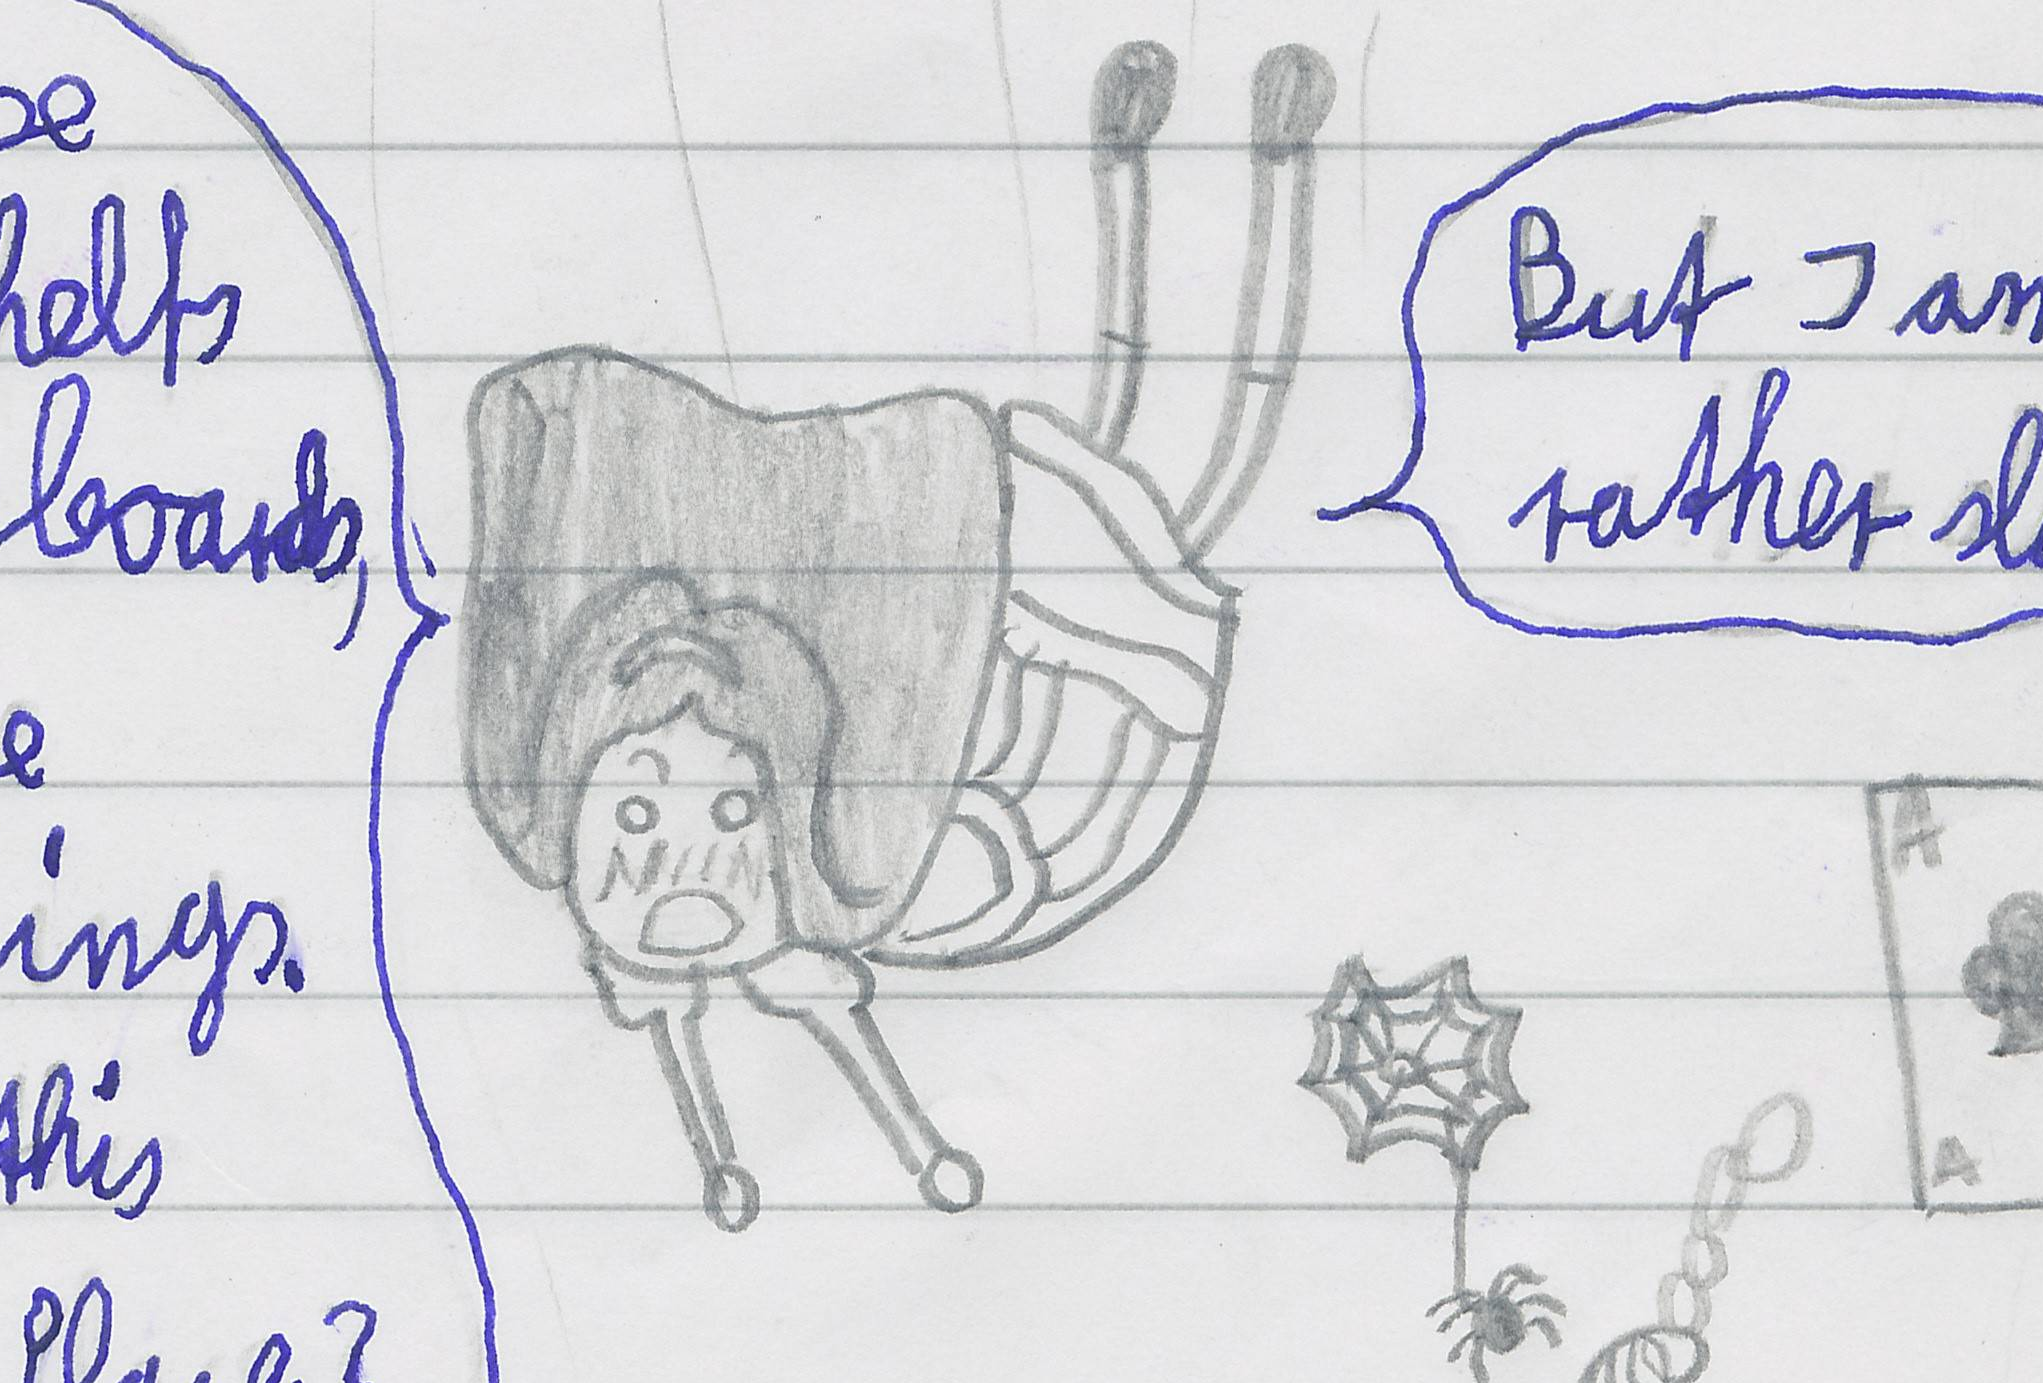 helfs
boards,
e
ings.
this
Place?
But I am
rather sl
A
A